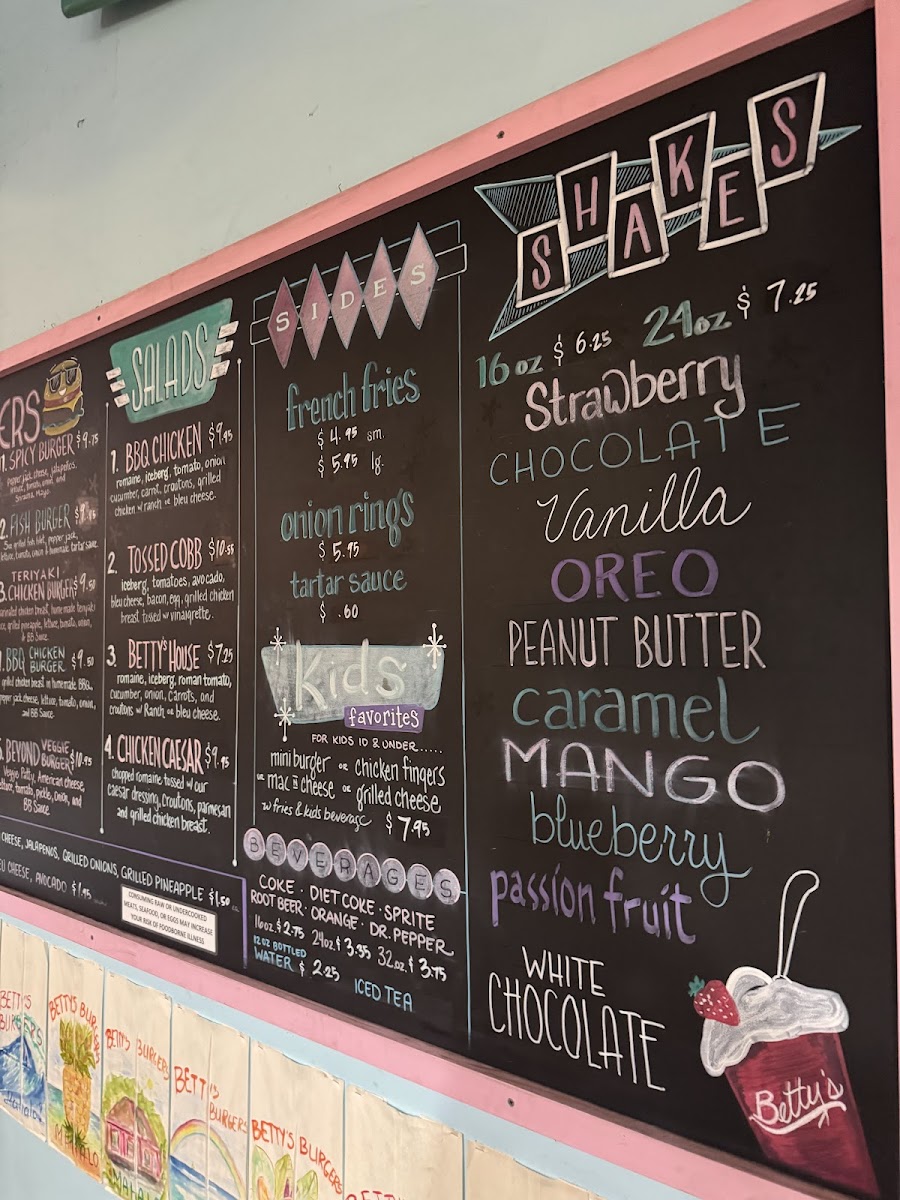 ERS
1. SPICY BURGER $9.75
pepper jack cheese, jalapeños,
lettuce, tomato, onion, and
Sriracha Mayo.
2. FISH BURGER $
grilled fish filet, pepper jack,
lettuce, tomato, onion & homemade tartar sauce
TERIYAKI
3. CHICKEN BURGER $9.50
marinated chicken breast, homemade teriyaki
grilled pineapple, lettuce, tomato, onion,
& BB Sauce
BBQ CHICKEN BURGER $9.50
grilled chicken breast in homemade BBQ,
pepper jack cheese, lettuce, tomato, onion,
and BB Sauce
5. BEYOND VEGGIE BURGER $10.95
Veggie Patty, American cheese,
lettuce, tomato, pickle, onion, and
BB Sauce
CHEESE, JALAPENOS, GRILLED ONIONS, GRILLED PINEAPPLE $1.50
CHEESE, AVOCADO $1.95
CONSUMING RAW OR UNDERCOOKED
MEATS, SEAFOOD, OR EGGS MAY INCREASE
YOUR RISK OF FOODBORNE ILLNESS
SALADS
1. BBQ CHICKEN $9.95
romaine, iceberg, tomato, onion
cucumber, carrot, croutons, grilled
chicken w/ ranch or bleu cheese.
2. TOSSED COBB $10.55
iceberg, tomatoes, avocado,
bleu cheese, bacon, egg, grilled chicken
breast tossed w/ vinaigrette.
3. BETTY'S HOUSE $7.25
romaine, iceberg, roman tomato,
cucumber, onion, carrots, and
croutons w/ Ranch or bleu cheese.
4. CHICKEN CAESAR $9.95
chopped romaine tossed w/ our
caesar dressing, croutons, parmesan
and grilled chicken breast.
SIDES
french fries
$4.95 sm.
$5.95 lg.
onion rings
$5.95
tartar sauce
$ .60
Kids
favorites
FOR KIDS 10 & UNDER.....
mini burger or chicken fingers
or mac n cheese or grilled cheese
w/ fries & kids beverage $7.95
BEVERAGES
COKE · DIET COKE · SPRITE
ROOT BEER · ORANGE · DR. PEPPER
16oz $2.75 24oz. $3.35 32oz. $3.75
12 OZ BOTTLED
WATER $2.25
ICED TEA
SHAKES
16oz $6.25 24oz $7.25
Strawberry
CHOCOLATE
Vanilla
OREO
PEANUT BUTTER
caramel
MANGO
blueberry
passion fruit
WHITE
CHOCOLATE
Betty's
BETTY'S
BURGERS
BETTY'S BURGERS
BETTY'S BURGERS
BETTY'S
BURGERS
BETTY'S BURGERS